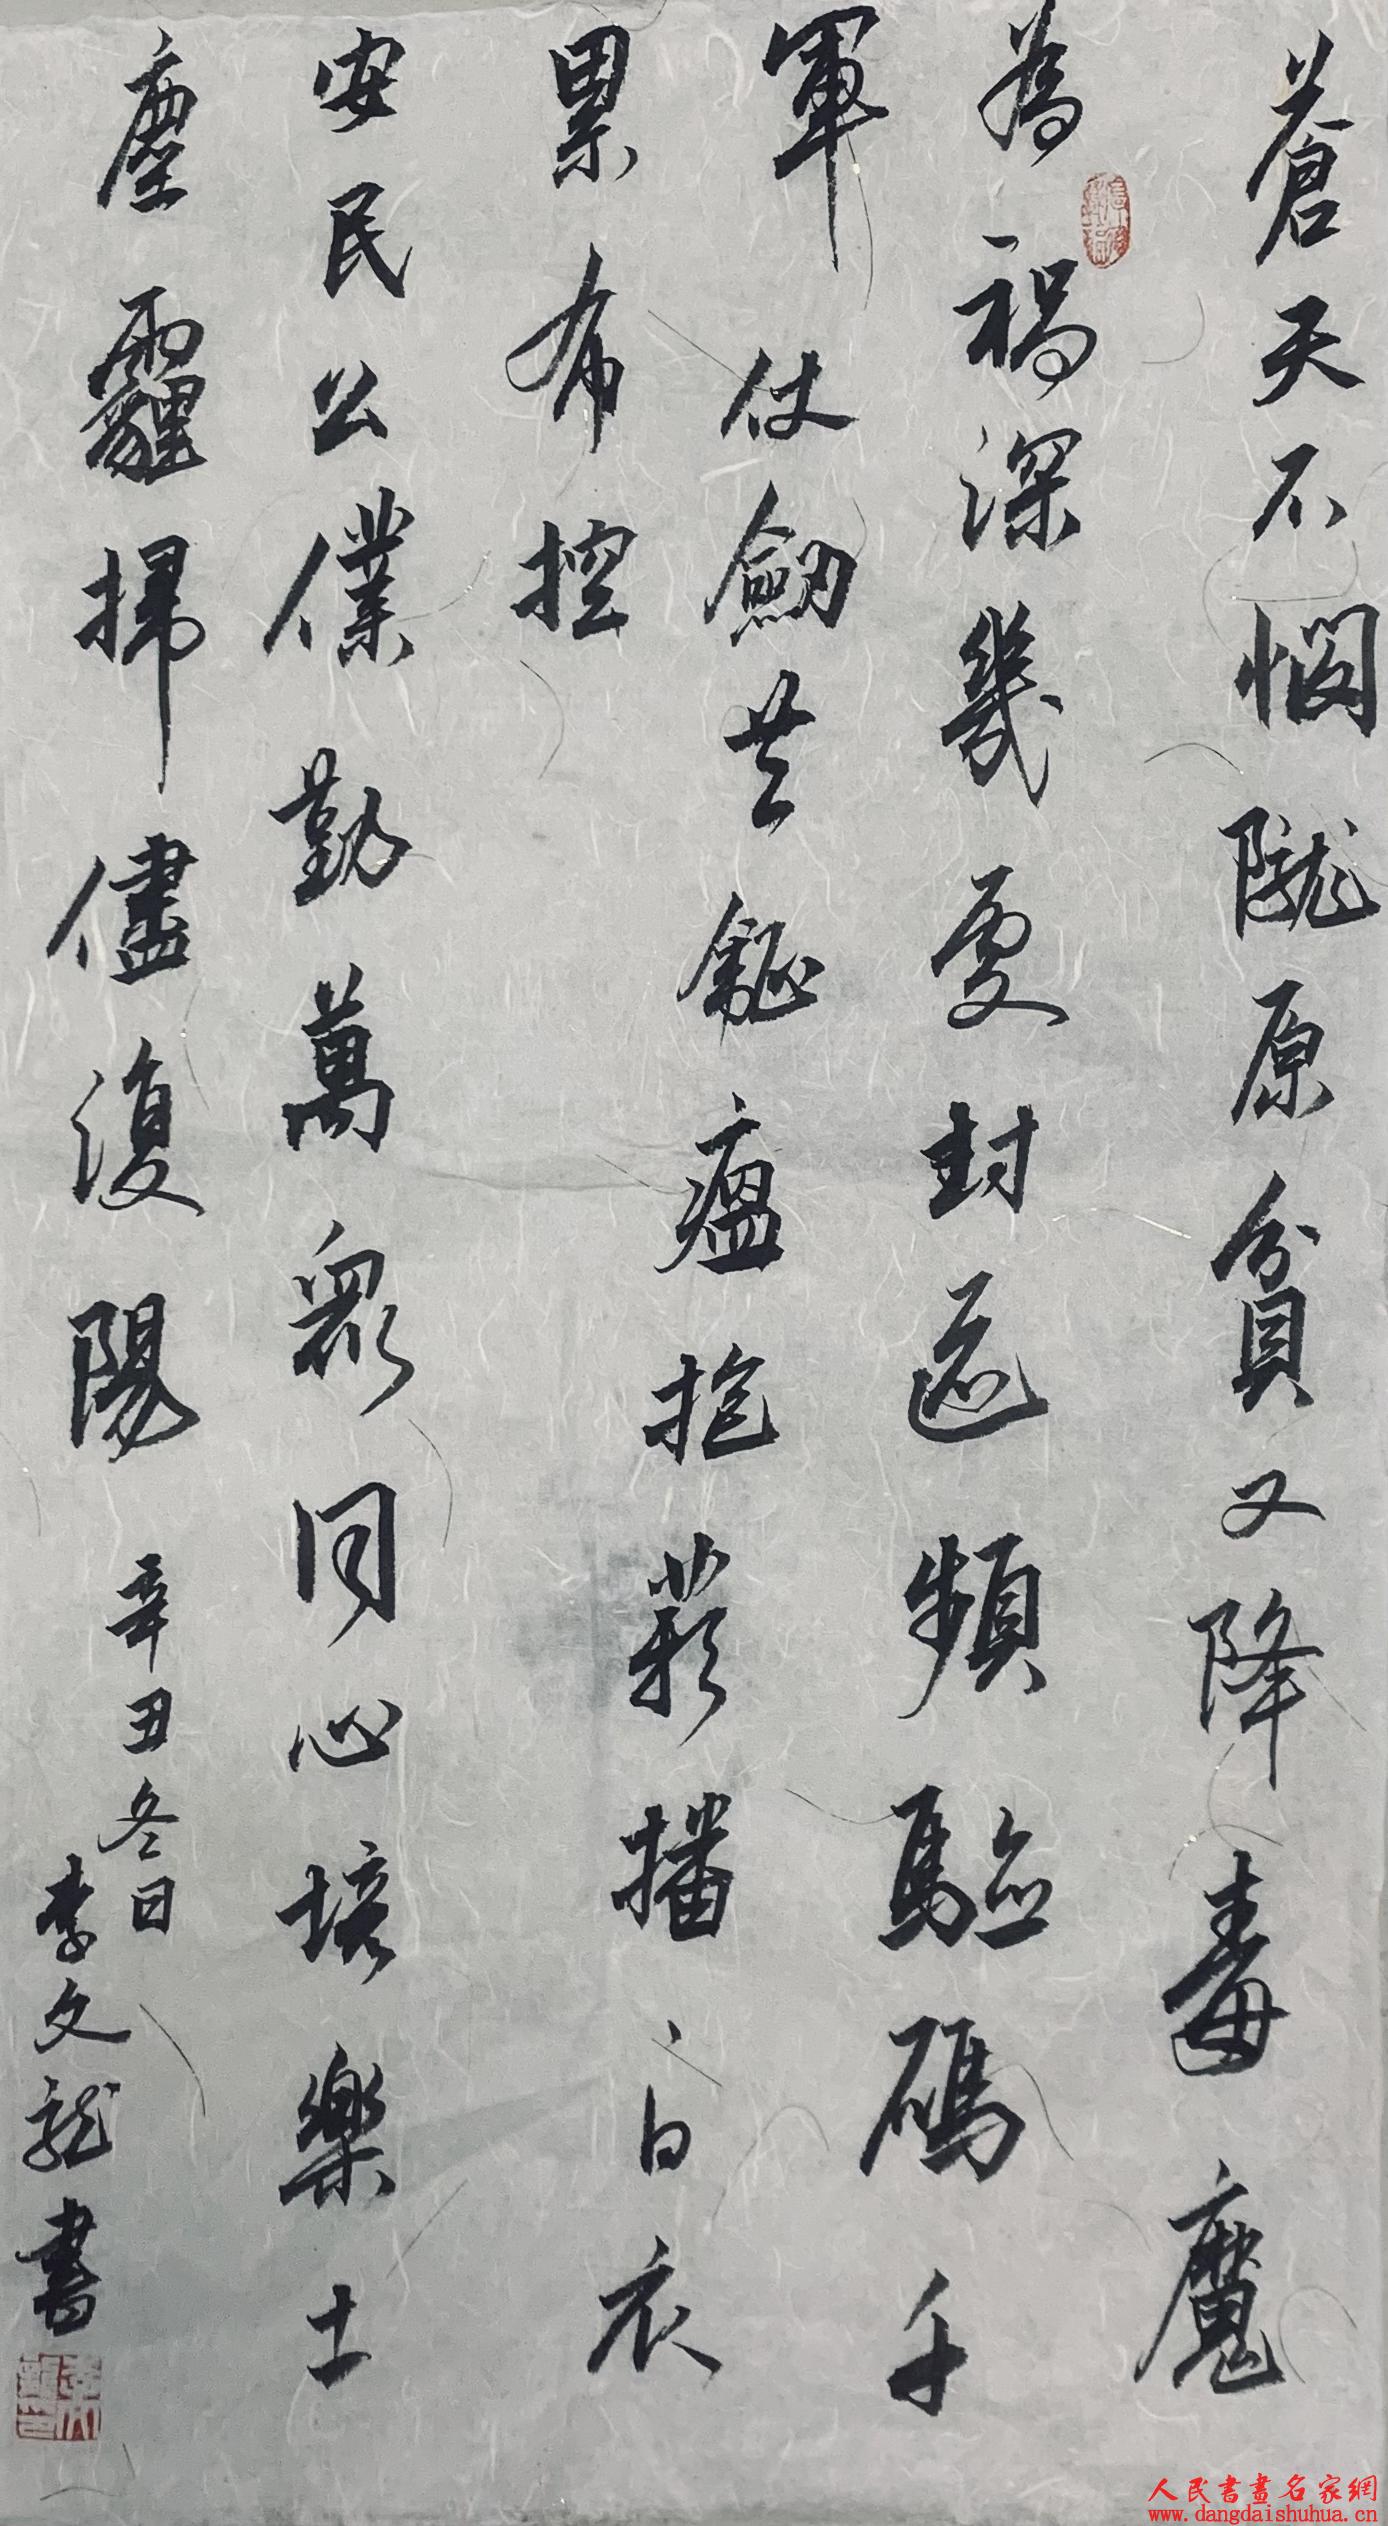 蒼天不憫隴原貧又降毒魔
為禍深幾處封區頻驗碼千
軍仗劒共鉦瘟抱薪播白衣
累布控
安民公僕勤萬眾同心培樂土
塵霾掃儘復陽
辛丑冬日
李文龍書
人民書畫名家網
www.dangdaishuhua.cn